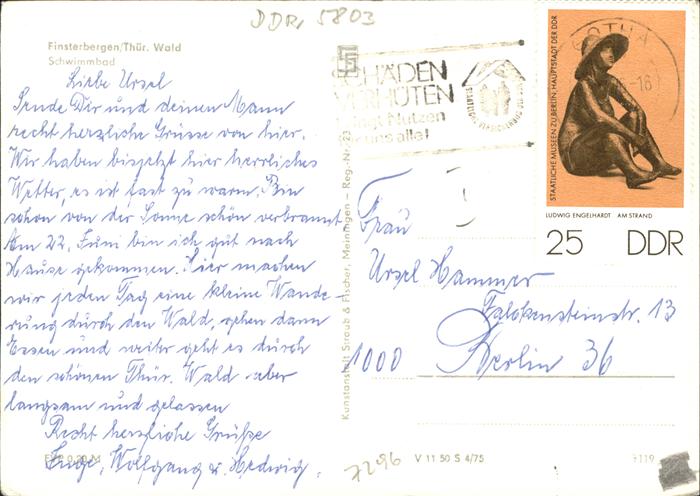 DDR, 5803
Finsterbergen/Thür. Wald
Schwimmbad
Liebe Ursel
Sende Dir und deinen Mann
recht herzliche Grüsse von hier.
Wir haben bisjetzt hier herrliches
Wetter, es ist fast zu warm. Bin
schon von der Sonne schön verbrannt
Am 22. Juni bin ich gut nach
Hause gekommen. Hier machen
wir jeden Tag eine kleine Wande-
rung durch den Wald, gehen dann
Essen und weiter geht es durch
den schönen Thür. Wald aber
langsam und gelassen
Recht herzliche Grüße
Inge, Wolfgang u. Hedwig.
0,20 M
Kunstanstalt Straub & Fischer, Meiningen - Reg.-Nr. 23
SCHÄDEN
VERHÜTEN
bringt Nutzen
für uns alle!
GOTHA
STAATLICHE MUSEEN ZU BERLIN, HAUPTSTADT DER DDR
LUDWIG ENGELHARDT AM STRAND
25 DDR
Frau
Ursel Hammer
Falckensteinstr. 13
1000 Berlin 36
7296
V 11 50 S 4/75
7119